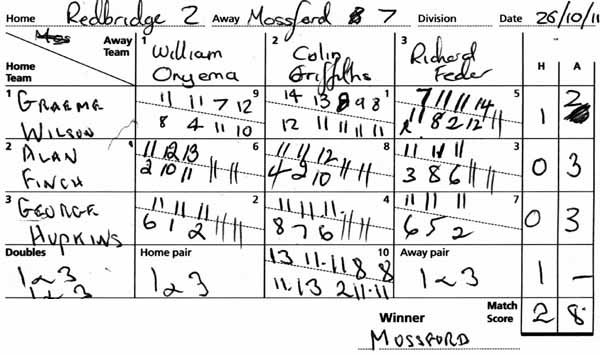 Home Redbridge 2 Away Mossford 7 Division Date 26/10/11
Away Team
Home Team
1 William Onyema
2 Colin Griffiths
3 Richard Feder
H A
1 Graeme Wilson
9
11 11 7 12
8 4 11 10
1
14 13 8 9 8
12 11 11 11 11
5
7 11 11 14
11 8 2 12
1 2
2 Alan Finch
6
11 12 13
2 10 11
8
11 11 12
4 2 10
3
11 11 11
3 8 6
0 3
3 George Hupkins
2
11 11 11
6 1 2
4
11 11 11
8 7 6
7
11 11 11
6 5 2
0 3
Doubles
1 & 3
1 & 3
Home pair
1 & 3
10
13 11 11 8 8
11 13 2 11 11
Away pair
1 & 3
1 -
Winner
Mossford
Match Score
2 8